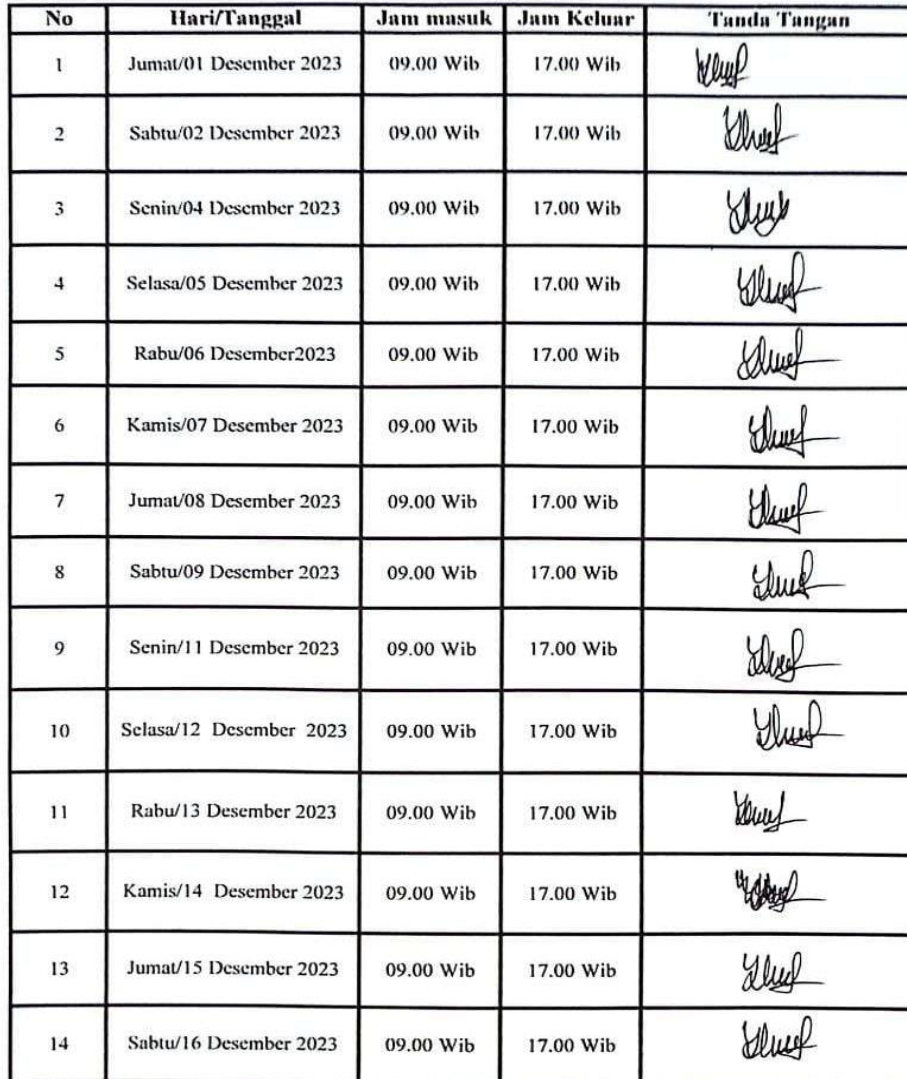 No Hari/Tanggal Jam masuk Jam Keluar Tanda Tangan
1 Jumat/01 Desember 2023 09.00 Wib 17.00 Wib
2 Sabtu/02 Desember 2023 09.00 Wib 17.00 Wib
3 Senin/04 Desember 2023 09.00 Wib 17.00 Wib
4 Selasa/05 Desember 2023 09.00 Wib 17.00 Wib
5 Rabu/06 Desember2023 09.00 Wib 17.00 Wib
6 Kamis/07 Desember 2023 09.00 Wib 17.00 Wib
7 Jumat/08 Desember 2023 09.00 Wib 17.00 Wib
8 Sabtu/09 Desember 2023 09.00 Wib 17.00 Wib
9 Senin/11 Desember 2023 09.00 Wib 17.00 Wib
10 Selasa/12 Desember 2023 09.00 Wib 17.00 Wib
11 Rabu/13 Desember 2023 09.00 Wib 17.00 Wib
12 Kamis/14 Desember 2023 09.00 Wib 17.00 Wib
13 Jumat/15 Desember 2023 09.00 Wib 17.00 Wib
14 Sabtu/16 Desember 2023 09.00 Wib 17.00 Wib